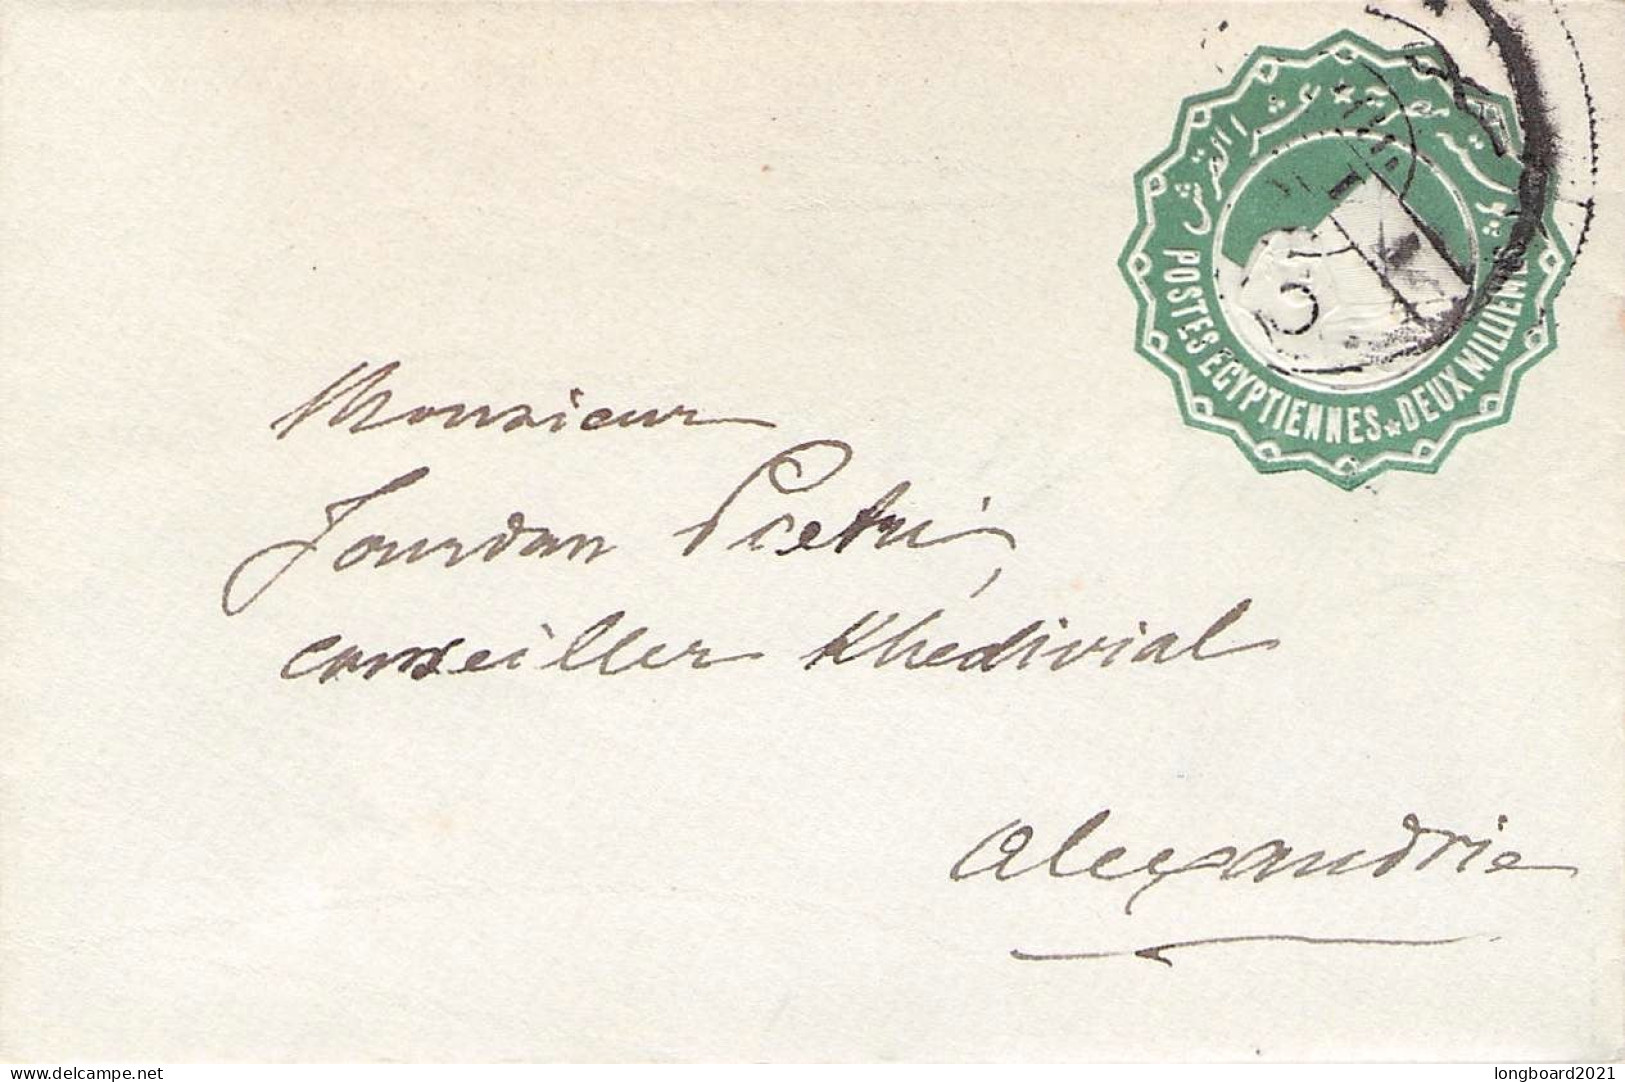 بوستة مصرية ★ عشر القرش
POSTES EGYPTIENNES ★ DEUX MILLIEMES
Monsieur
Jourdan Pietri,
conseiller Khedivial
Alexandrie
www.delcampe.net
longboard2021